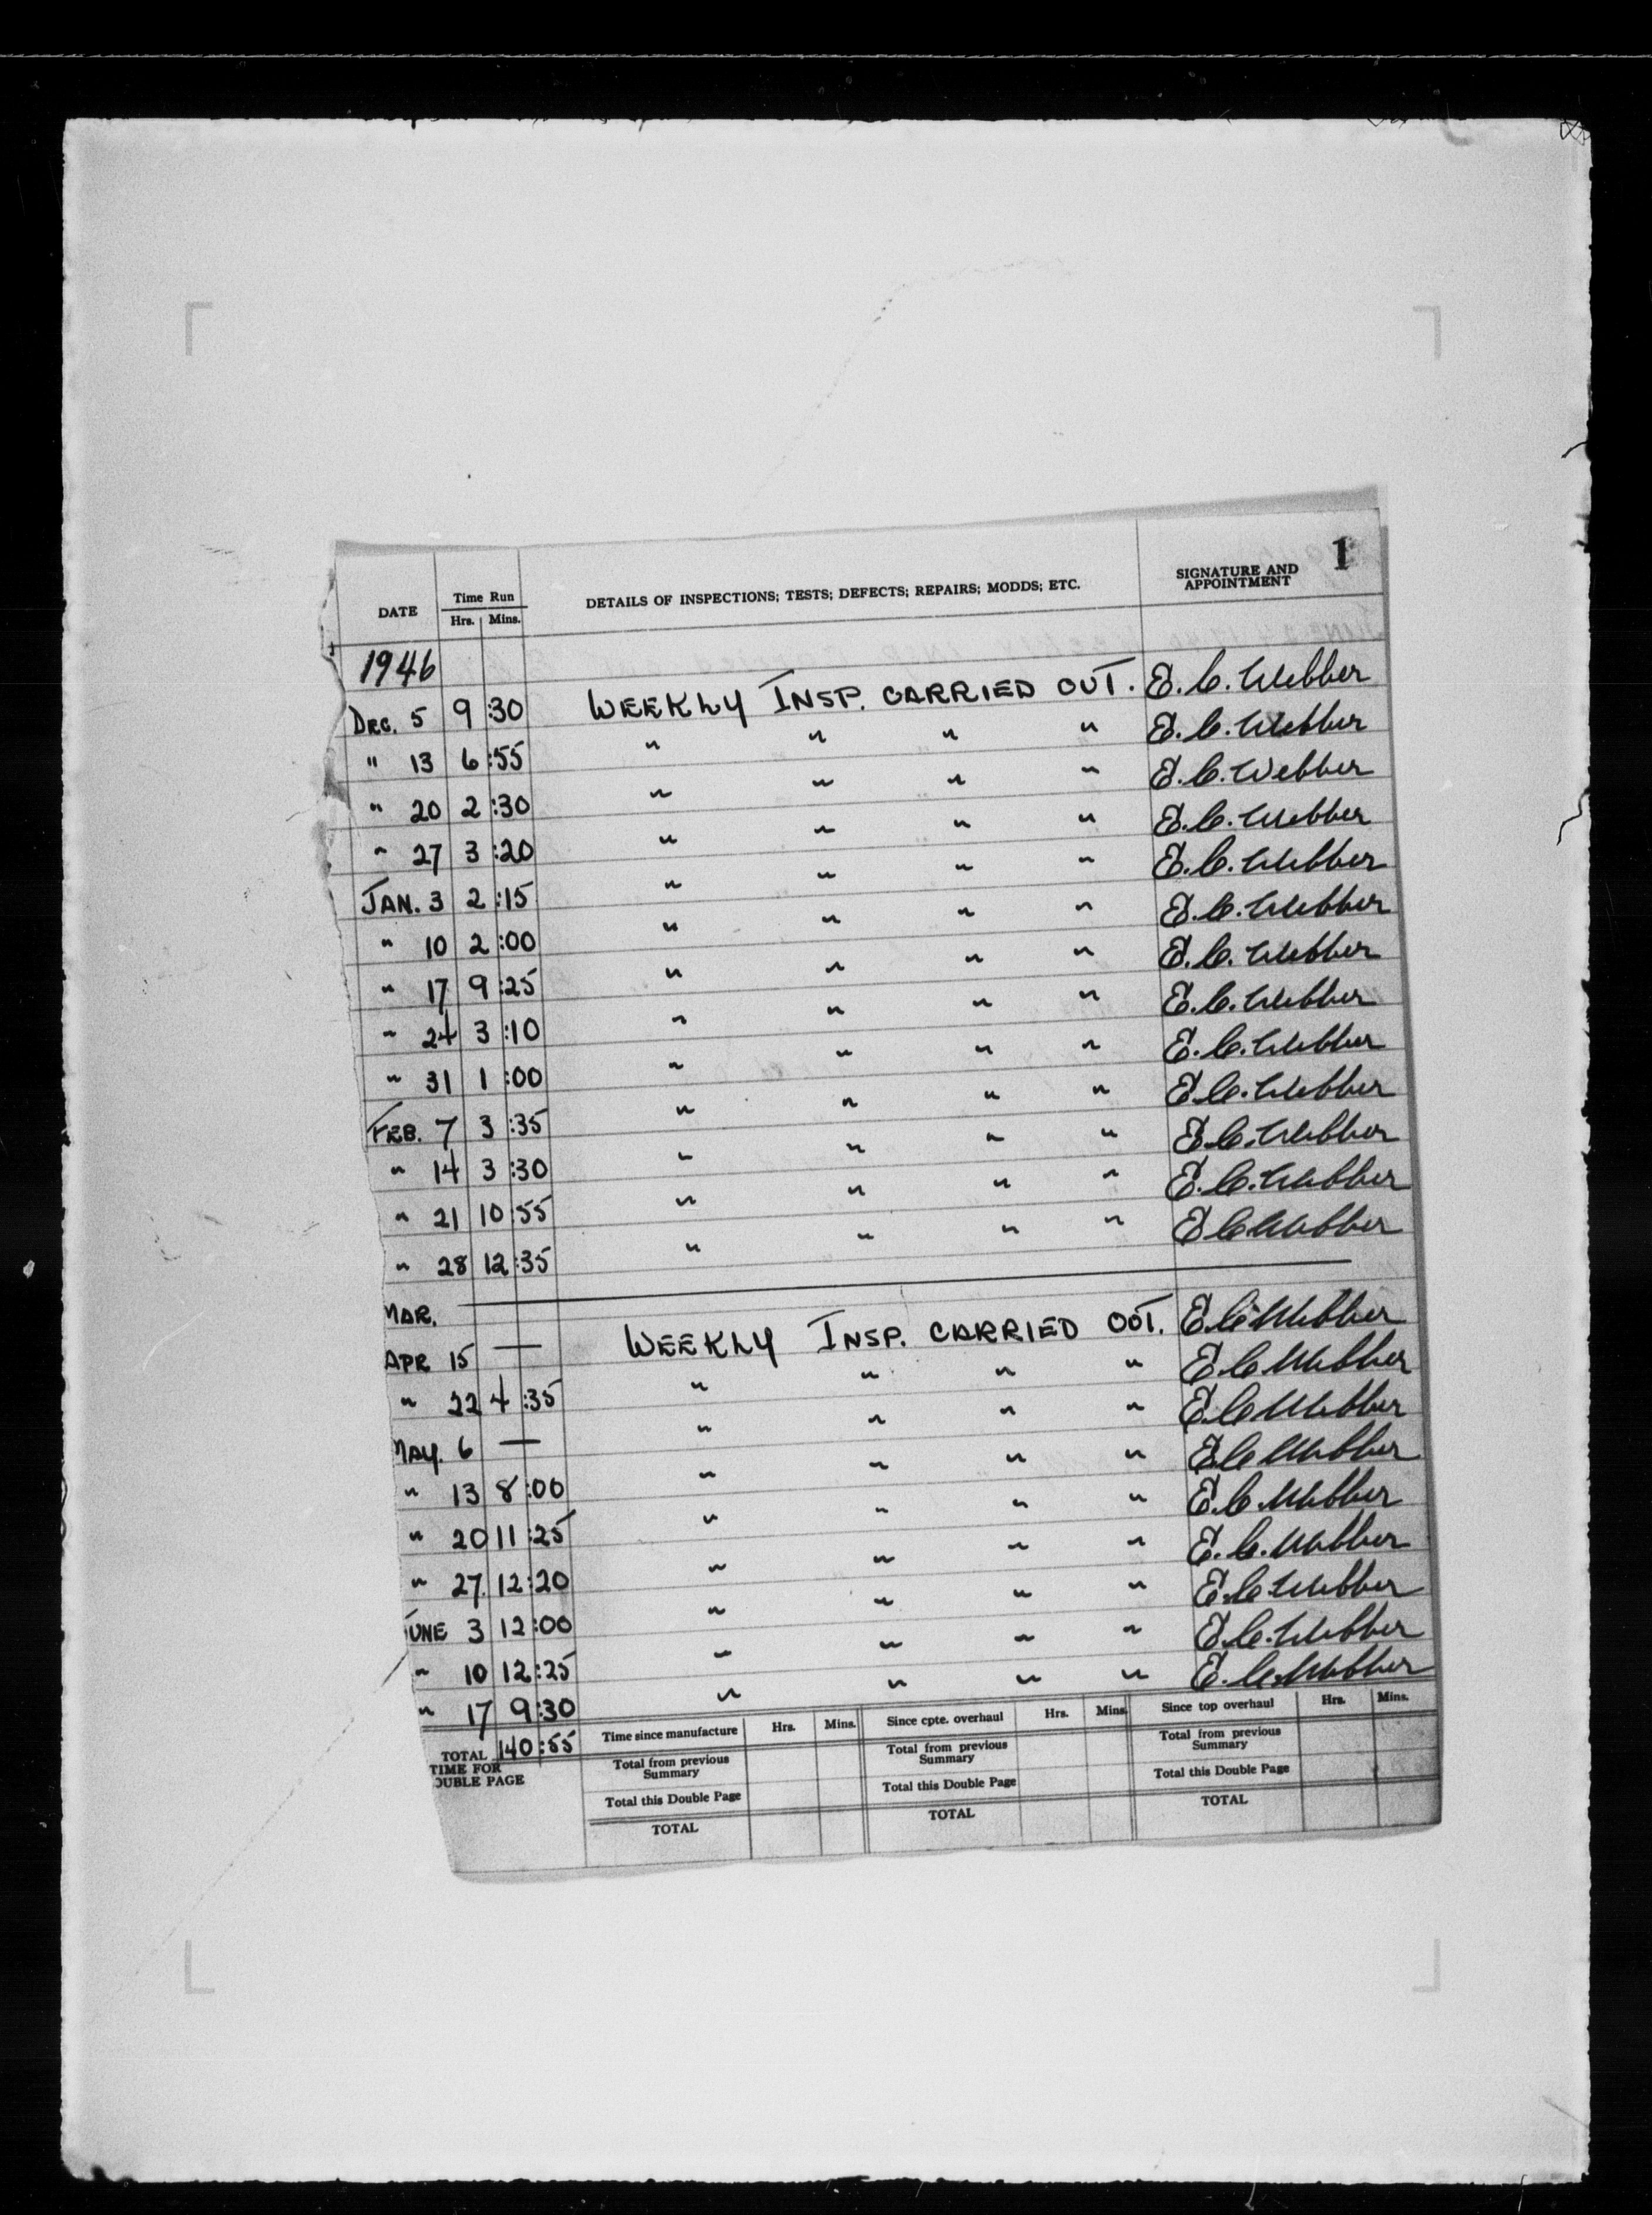 1
DATE Time Run Hrs. Mins. DETAILS OF INSPECTIONS; TESTS; DEFECTS; REPAIRS; MODDS; ETC. SIGNATURE AND APPOINTMENT
1946
DEC. 5 9 :30 WEEKLY INSP. CARRIED OUT. E. C. Webber
" 13 6 :55 " " " " E. C. Webber
" 20 2 :30 " " " " E. C. Webber
" 27 3 :20 " " " " E. C. Webber
JAN. 3 2 :15 " " " " E. C. Webber
" 10 2 :00 " " " " E. C. Webber
" 17 9 :25 " " " " E. C. Webber
" 24 3 :10 " " " " E. C. Webber
" 31 1 :00 " " " " E. C. Webber
FEB. 7 3 :35 " " " " E. C. Webber
" 14 3 :30 " " " " E. C. Webber
" 21 10 :55 " " " " E. C. Webber
" 28 12 :35 " " " " E C Webber
MAR. —
APR 15 — WEEKLY INSP. CARRIED OUT. E. C. Webber
" 22 4 :35 " " " " E C Webber
MAY. 6 — " " " " E. C Webber
" 13 8 :00 " " " " E. C Webber
" 20 11 :25 " " " " E. C. Webber
" 27. 12 :20 " " " " E. C. Webber
JUNE 3 12 :00 " " " " E. C Webber
" 10 12 :25 " " " " E. C. Webber
" 17 9 :30 " " " " E. C. Webber
TOTAL TIME FOR DOUBLE PAGE 140 :55
Time since manufacture Hrs. Mins. Since cpte. overhaul Hrs. Mins. Since top overhaul Hrs. Mins.
Total from previous Summary Total from previous Summary Total from previous Summary
Total this Double Page Total this Double Page Total this Double Page
TOTAL TOTAL TOTAL